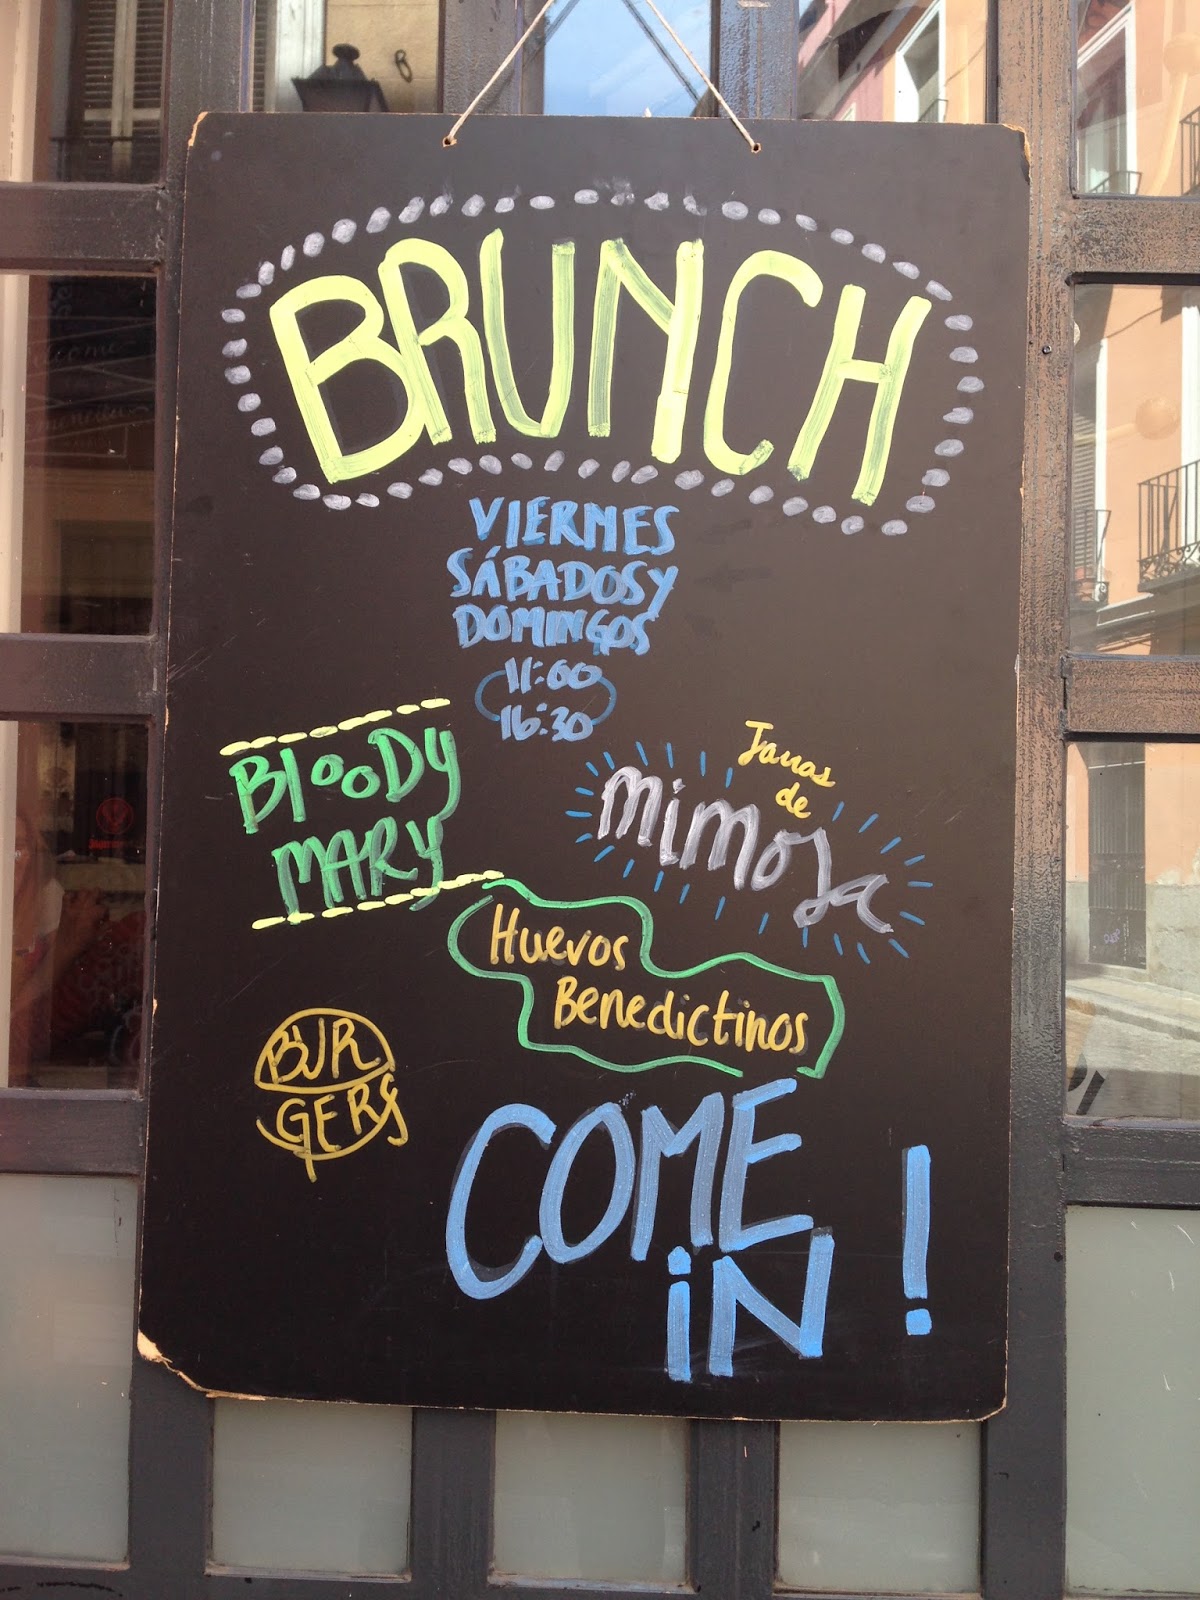 BRUNCH
VIERMES
SÁBADOS Y
DOMINGOS
11:00
16:30
BlooDy
MARy
Jarras
de
mimosa
Huevos
Benedictinos
BUR
GERS
COME
iN !